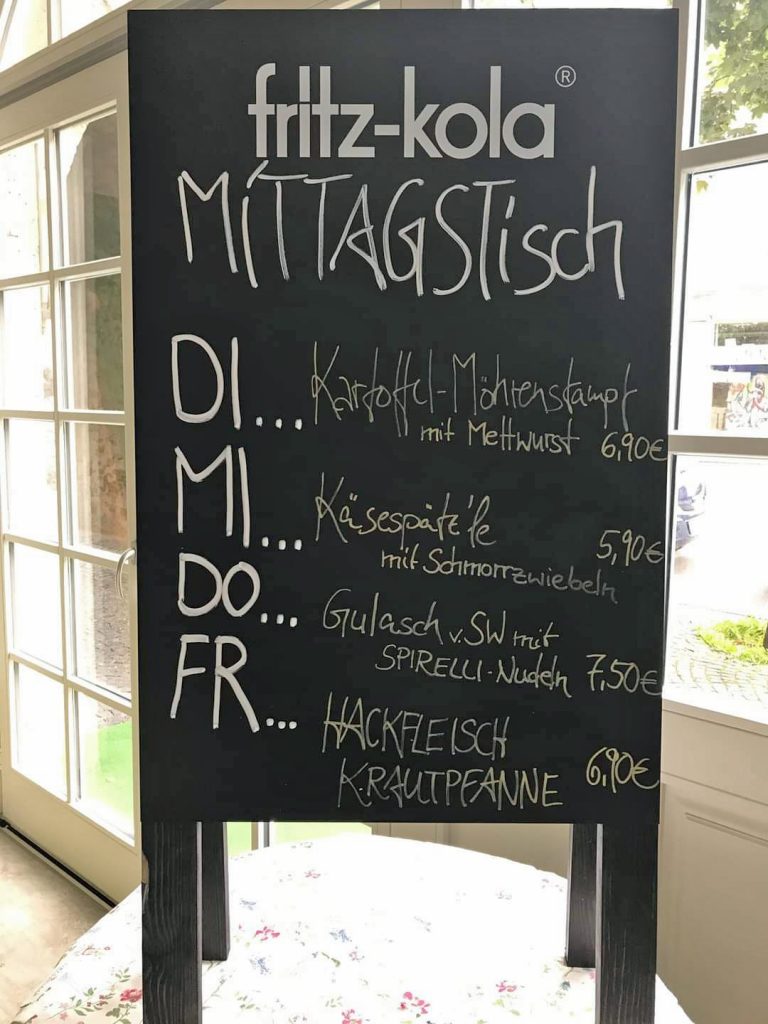 fritz-kola®
MITTAGSTisch
DI... Kartoffel-Möhrenstampf
mit Mettwurst 6,90€
MI... Käsespätz'le
5,90€
mit Schmorrzwiebeln
DO... Gulasch v. SW mit
SPIRELLI-Nudeln 7,50€
FR... HACKFLEISCH
KRAUTPFANNE 6,90€